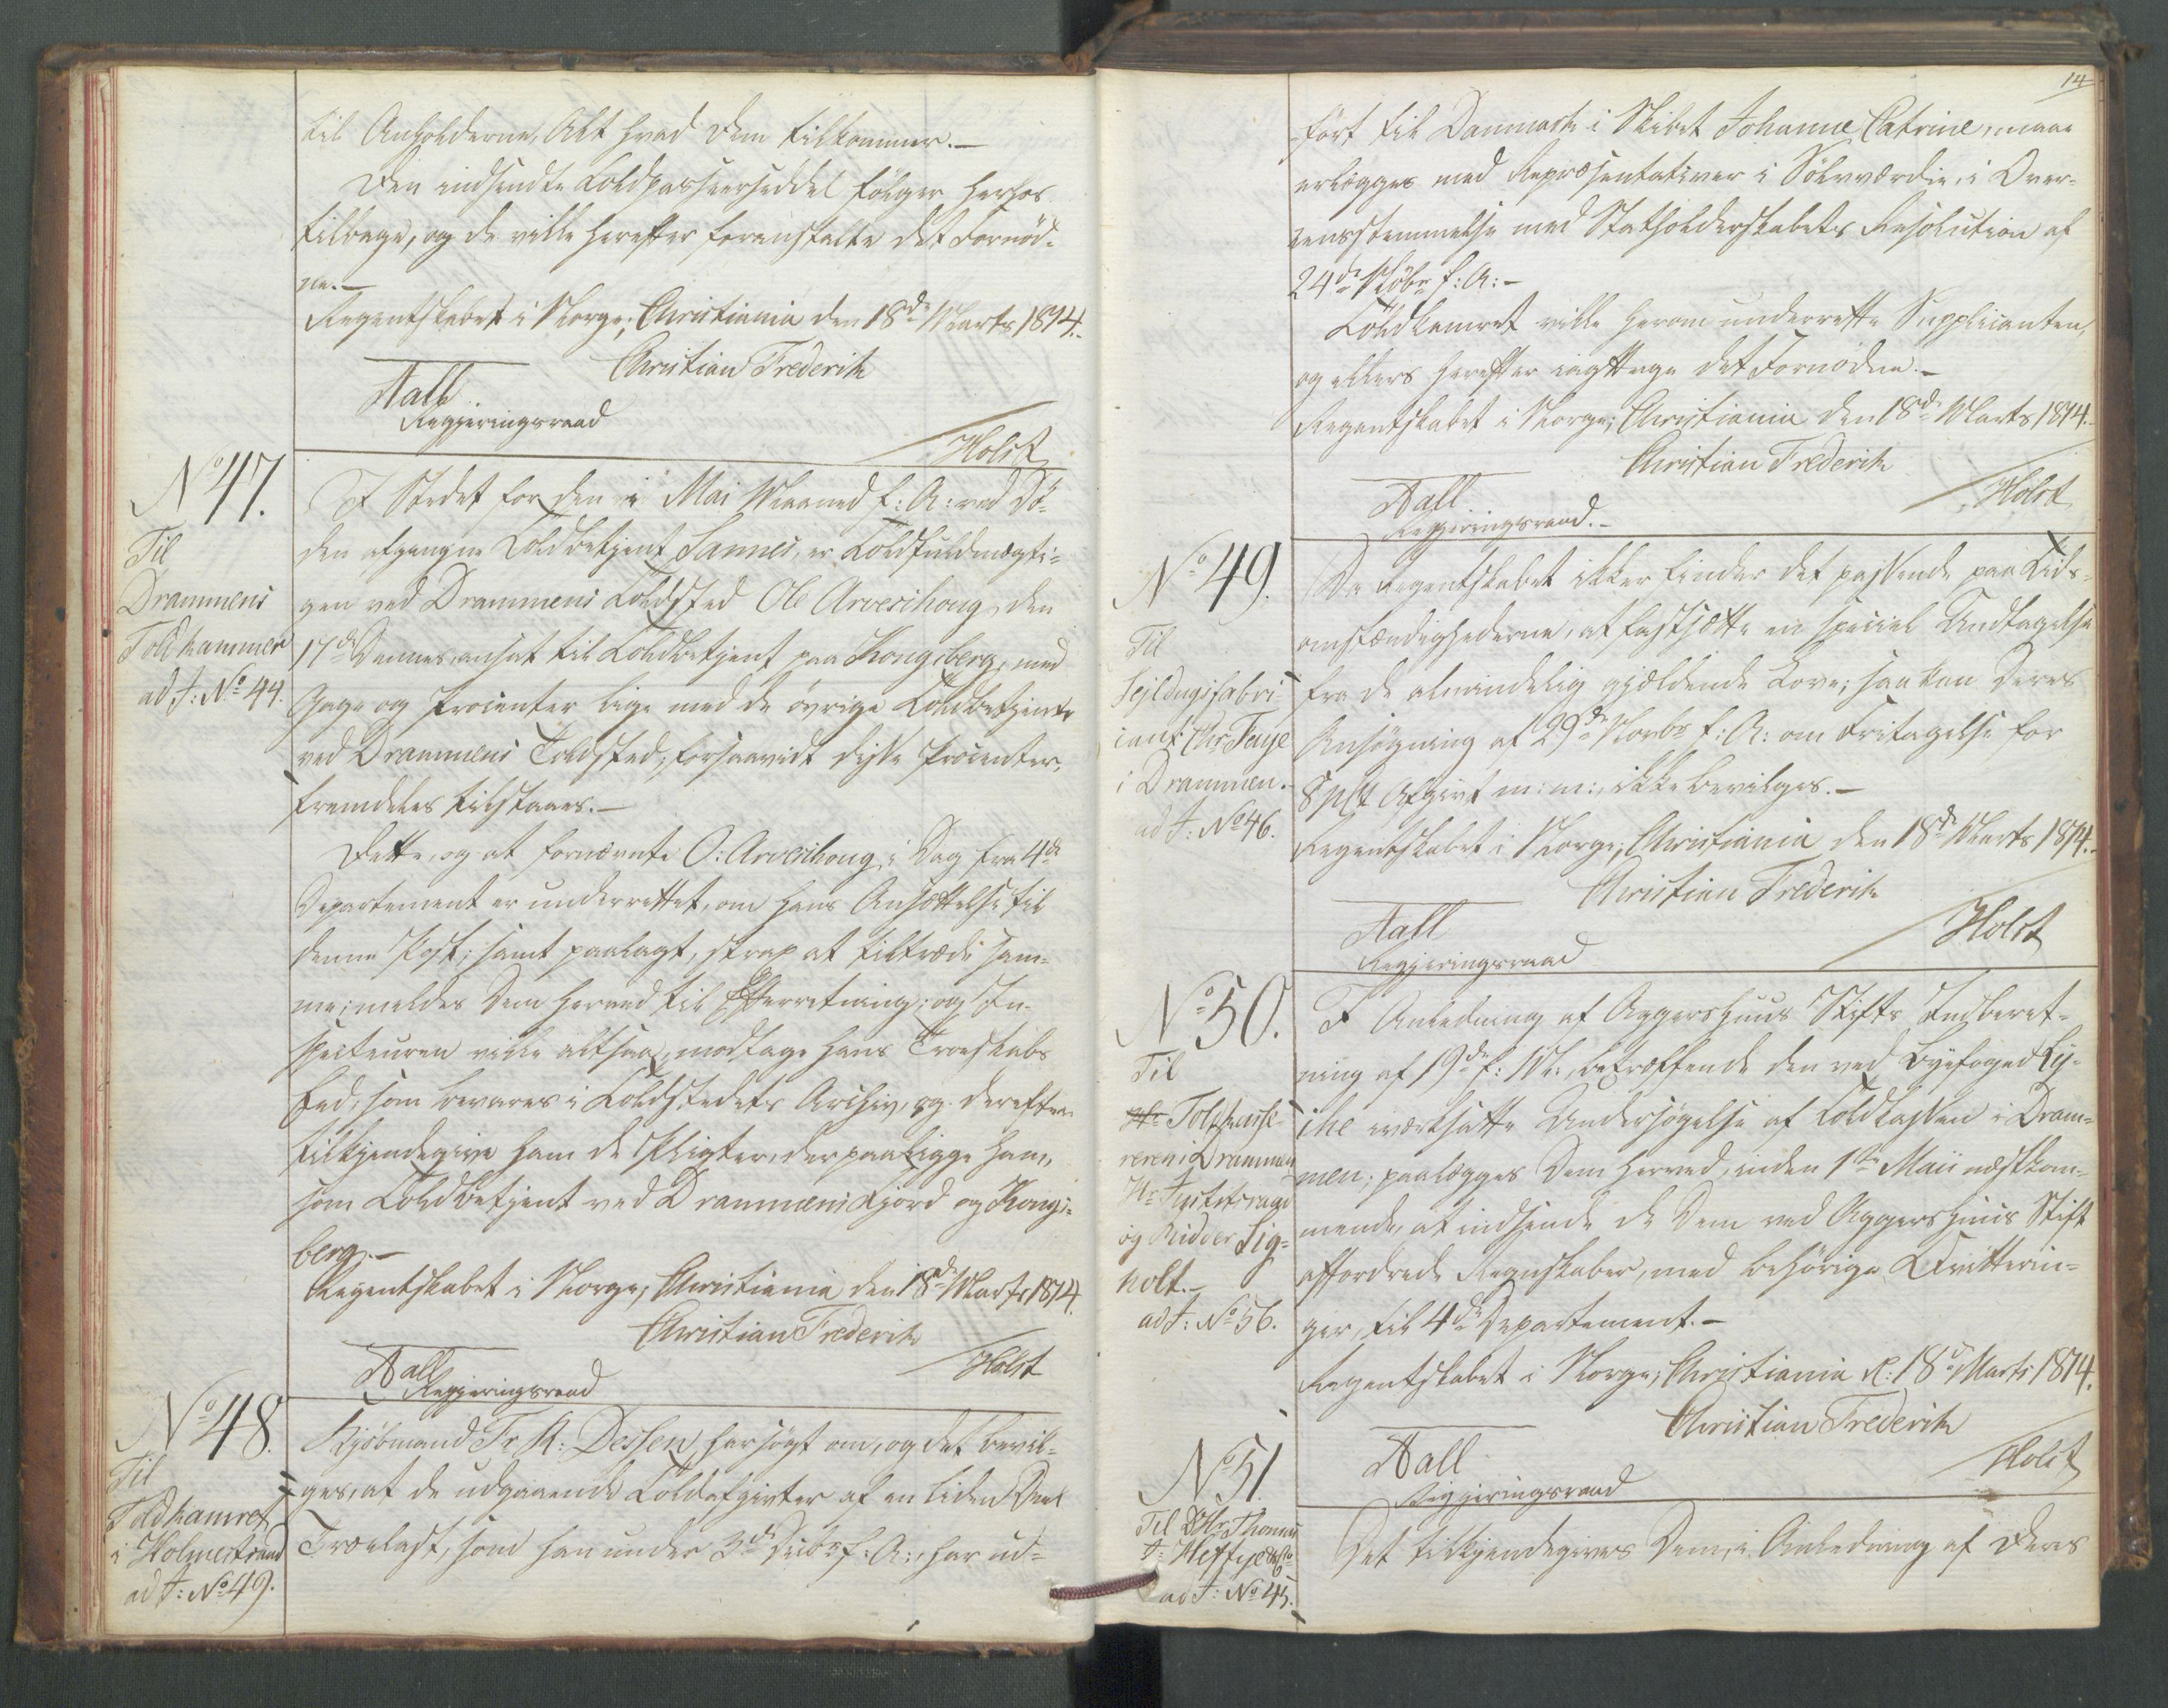 til Anholderne, Alt hvad dem tilkommer.—
Den indsendte Toldpasseerseddel følger herhos
tilbage, og de ville herefter foranstalte det Fornød-
ne.—
Regentskabet i Norge, Christiania den 18de Marts 1814.
Christian Frederik
Aall
Regjeringsraad
Holst
No 47.
Til
Drammens
Toldkammer
ad J: No 44.
I Stedet for den i Mai Maaned f: A: ved Dø-
den afgangne Toldbetjent Sannes, er Toldfuldmægti-
gen ved Drammens Toldsted Ole Arveschoug, den
17de Dennes, ansat til Toldbetjent paa Kongsberg, med
Gage og Procenter lige med de øvrige Toldbetjente
ved Drammens Toldsted, forsaavidt disse Procenter,
fremdeles tilstaaes.—
Dette, og at fornævnte O: Arveschoug, i Dag fra 4de
Departement er underrettet, om hans Ansættelse til
denne Post, samt paalagt, strax at tiltræde sam-
me; meldes Dem herved til Efterretning; og In-
specteuren ville altsaa, modtage hans Troeskabs
Eed, som bevares i Toldstedets Archiv, og derefter
tilkjendegive ham de Pligter, der paaligge ham,
som Toldbetjent ved Drammens Fjord og Kongs-
berg.—
Regentskabet i Norge, Christiania den 18de Marts 1814.
Christian Frederik
Aall
Regjeringsraad
Holst
No 48.
Til
Toldkamret
i Holmestrand
ad J: No 49.
Kjøbmand Fr. A: Dessen har søgt om, og det bevil-
ges, at de udgaaende Toldafgivter af en liden Deel
Trælast, som han under 3de Decbr f: A:, har ud-
14
ført til Danmark i Skibet Johanne Catrine, maae
erlægges med Repræsentativer i Sølvværdie, i Over-
eensstemmelse med Statholderskabets Resolution af
24de Novbr f: A:—
Toldkamret ville herom underrette Supplicanten,
og ellers herefter iagttage det Fornødne.—
Regentskabet i Norge; Christiania den 18de Marts 1814.
Christian Frederik
Aall
Regjeringsraad.—
Holst
No 49.
Til
Sejldugsfabri-
cant Chr. Faye
i Drammen.
ad J: No 46.
Da Regentskabet ikke finder det passende paa Tids-
omstændighederne, at fastsætte en speciel Undtagelse
fra de almindelig gjældende Love; saa kan Deres
Ansøgning af 29de Novbr f: A: om Fritagelse for
8 pCt Afgivt m: m:, ikke bevilges.—
Regentskabet i Norge; Christiania den 18de Marts 1814.
Christian Frederik
Aall
Regjeringsraad
Holst
No 50.
Til
Hr Toldkasse-
reren i Drammen
Hr Justitsraad
og Ridder Lig-
holt.—
ad J: No 56.
I Anledning af Aggershuus Stifts Indberet-
ning af 19de f: M:, betræffende den ved Byefoged Ly-
che iværksatte Undersøgelse af Toldkassen i Dram-
men; paalægges Dem herved, inden 1ste Maii næstkom-
mende, at indsende de Dem ved Aggershuus Stift
affordrede Regnskaber, med behørige Qvitterin-
ger, til 4de Departement.—
Regentskabet i Norge; Christiania d: 18de Marts 1814.
Christian Frederik
Aall
Regjeringsraad
Holst
No 51.
Til DHr. Thomas
J: Heftye
ad J: No 45.
Det tilkjendegives Dem, i Anledning af Deres